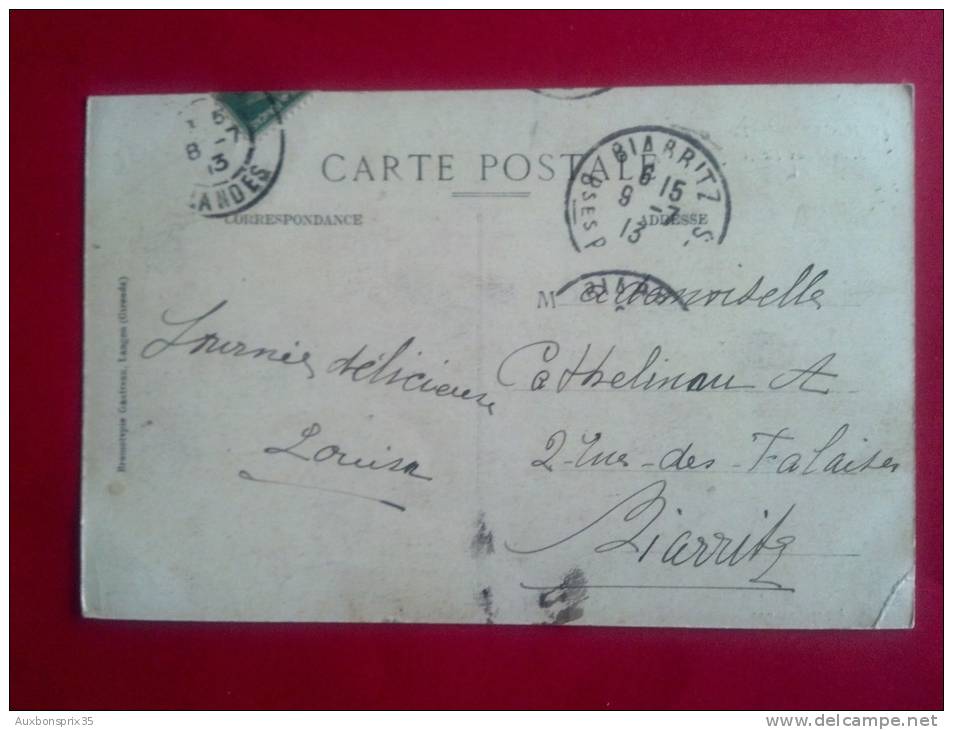 CARTE POSTALE
CORRESPONDANCE
ADRESSE
LANDES
8 - 7
13
BIARRITZ
6 15
9 - 7
13
BSES P
Mademoiselle
Journée délicieuse
Louisa
Cathelinau A
2 rue des Falaises
Biarritz
Bromotypie Gautreau, Langon (Gironde)
Auxbonsprix35
www.delcampe.net